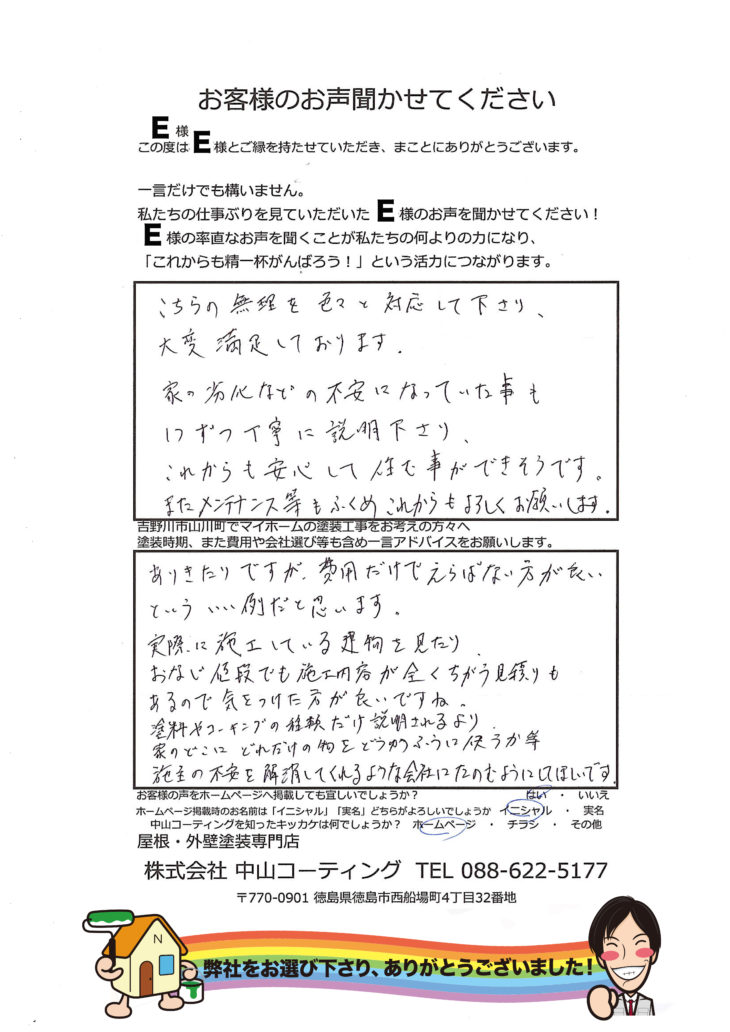 お客様のお声聞かせてください
E 様
この度は E 様とご縁を持たせていただき、まことにありがとうございます。
一言だけでも構いません。
私たちの仕事ぶりを見ていただいた E 様のお声を聞かせてください！
E 様の率直なお声を聞くことが私たちの何よりの力になり、
「これからも精一杯がんばろう！」という活力につながります。
こちらの無理を色々と対応して下さり、
大変満足しております.
家の劣化などの不安になっていた事も
1つずつ丁寧に説明下さり、
これからも安心して住む事ができそうです。
またメンテナンス等もふくめこれからもよろしくお願いします.
吉野川市山川町でマイホームの塗装工事をお考えの方々へ
塗装時期、また費用や会社選び等も含め一言アドバイスをお願いします。
ありきたりですが、費用だけでえらばない方が良い
という いい例だと思います。
実際に施工している建物を見たり、
おなじ値段でも施工内容が全くちがう見積りも
あるので気をつけた方が良いですね。
塗料やコーキングの種類だけ説明されるより、
家のどこに どれだけの物をどういうふうに使うか等
施主の不安を解消してくれるような会社にたのむようにしてほしいです.
お客様の声をホームページへ掲載しても宜しいでしょうか？ はい ・ いいえ
ホームページ掲載時のお名前は「イニシャル」「実名」どちらがよろしいでしょうか イニシャル ・ 実名
中山コーティングを知ったキッカケは何でしょうか？ ホームページ ・ チラシ ・ その他
屋根・外壁塗装専門店
株式会社 中山コーティング TEL 088-622-5177
〒770-0901 徳島県徳島市西船場町4丁目32番地
N
弊社をお選び下さり、ありがとうございました！